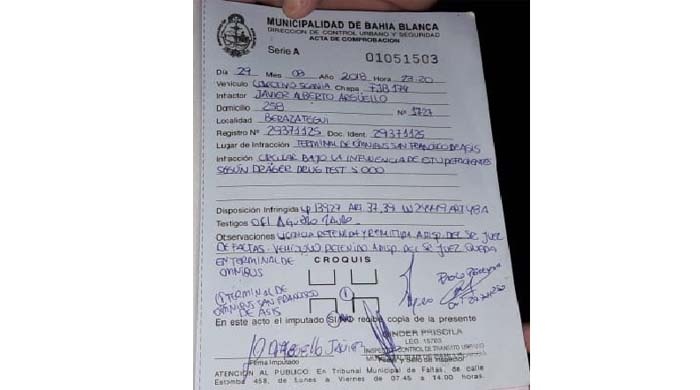 MUNICIPALIDAD DE BAHIA BLANCA
DIRECCION DE CONTROL URBANO Y SEGURIDAD
ACTA DE COMPROBACION
Serie A
01051503
Día 29 Mes 03 Año 2018 Hora 23:20
Vehículo COLECTIVO SCANIA Chapa FJB174
Infractor JAVIER ALBERTO ARGÜELLO
Domicilio 258 Nº 1727
Localidad BERAZATEGUI
Registro Nº 29371125 Doc. Ident. 29371125
Lugar de Infracción TERMINAL DE OMNIBUS SAN FRANCISCO DE ASIS
Infracción CIRCULAR BAJO LA INFLUENCIA DE ESTUPEFACIENTES
SEGÚN DRÄGER DRUG TEST 5000
Disposición Infringida LP 13927 ART. 37, 39 LN 24449 ART 48A
Testigos OFL AGUERO
Observaciones LICENCIA RETENIDA Y REMITIDA A DISP. DEL SR JUEZ
DE FALTAS. VEHICULO DETENIDO A DISP. DEL SR JUEZ QUEDA
EN TERMINAL DE
OMNIBUS
CROQUIS
① TERMINAL DE
OMNIBUS SAN FRANCISCO
DE ASIS
1
En este acto el imputado SI/NO recibe copia de la presente
GINDER PRISCILA
LEG. 15763
INSPECTOR CONTROL DE TRANSITO URBANO
Firma Imputado
Firma y Sello de Inspector
ATENCION AL PUBLICO: En Tribunal Municipal de Faltas, de calle
Estomba 458, de Lunes a Viernes de 07.45 a 14.00 horas.